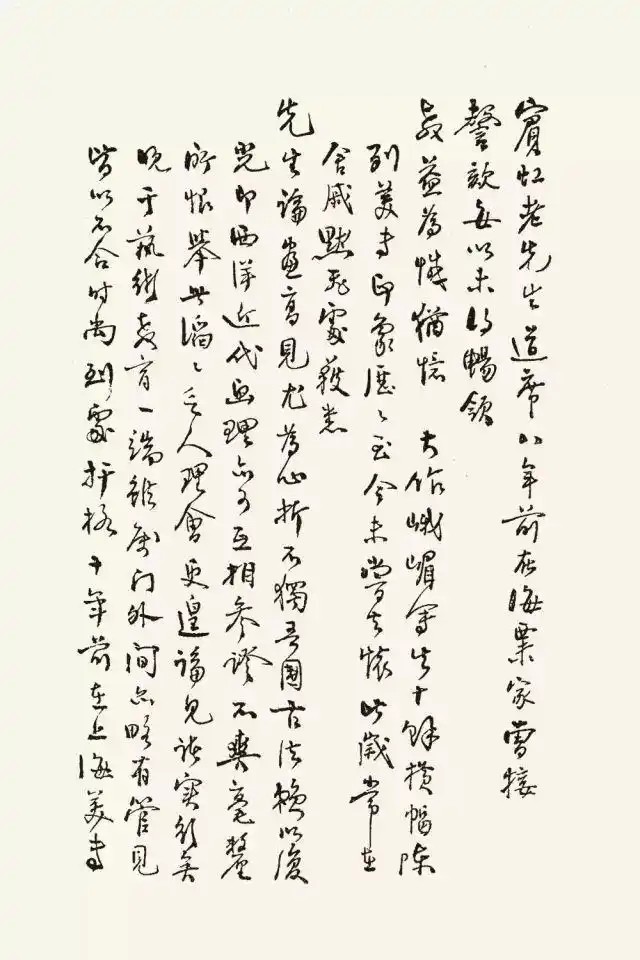 賓虹老先生道席八年前在海粟家曾接
謦欬每以未得暢領
教益為憾猶憶　大作峨嵋寫生十餘橫幅陳
列美專印象歷歷至今未嘗去懷此歲常在
舍戚默飛處獲悉
先生論畫高見尤為心折不獨吾國古法賴以復
光即西洋近代画理亦可互相參證不爽毫釐
所恨舉世滔々乏人理會更遑論見諸實行矣
晚于藝術教育一端雖屬门外间亦略有管見
皆以不合时尚到處扞格十年前在上海美专